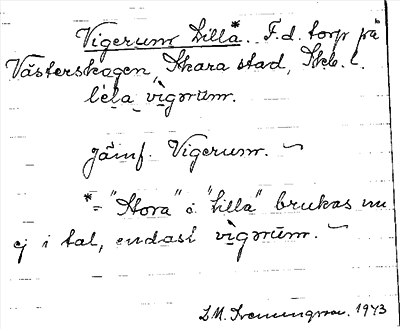 Vigerum Lilla*. F.d. torp på
Västerskogen, Skara stad, Skb. l.
lela vigrum.
jämf. Vigerum. ~
*= "Stora" o. "Lilla" brukas nu
ej i tal, endast vigrum. ~
1943